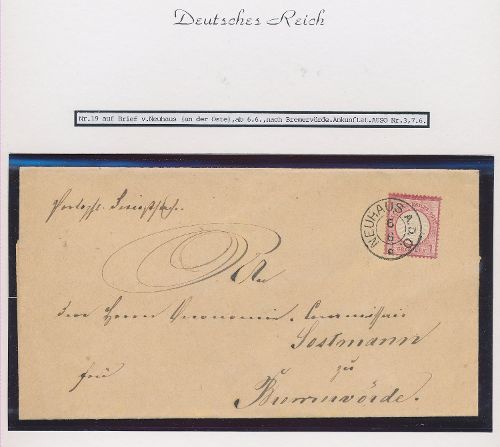 Deutsches Reich
Nr.19 auf Brief v.Neuhaus (an der Oste),ab 6.6.,nach Bremervörde.Ankunftst.AUSG Nr.3,7.6.
Portopfl. Dienstsache.
NEUHAUS A.D.O.
6
6
An
den Herrn Oeconomie-Commissair
Sostmann
zu
frei
Bremervörde.